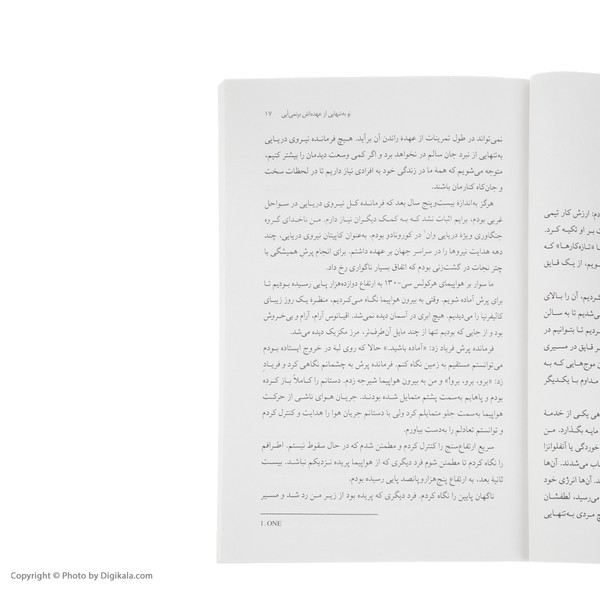 تو به‌تنهایی از عهده‌اش برنمی‌آیی ۱۷
نمی‌تواند در طول تمرینات از عهدهٔ راندن آن برآید. هیچ فرمانده نیروی دریایی
به‌تنهایی از نبرد جان سالم در نخواهد برد و اگر کمی وسعت دیدمان را بیشتر کنیم،
متوجه می‌شویم که همهٔ ما در زندگی خود به افرادی نیاز داریم تا در لحظات سخت
و جان‌کاه کنارمان باشند.
هرگز به‌اندازهٔ بیست‌وپنج سال بعد که فرمانده کل نیروی دریایی در سواحل
غربی بودم، برایم اثبات نشد که به کمک دیگران نیاز دارم. من ناخدای گروه
جنگاوری ویژهٔ دریایی وان۱ در کورونادو بودم. به‌عنوان کاپیتان نیروی دریایی، چند
دهه هدایت نیروها را در سراسر جهان بر عهده داشتم. برای انجام پرش همیشگی با
چتر نجات در گشت‌زنی بودم که اتفاق بسیار ناگواری رخ داد.
ما سوار بر هواپیمای هرکولس سی-۱۳۰ به ارتفاع دوازده‌هزار پایی رسیده بودیم تا
برای پرش آماده شویم. وقتی به بیرون هواپیما نگاه می‌کردیم، منظرهٔ یک روز زیبای
کالیفرنیا را می‌دیدیم. هیچ ابری در آسمان دیده نمی‌شد. اقیانوس آرام، آرام و بی‌خروش
بود و از جایی که بودیم تنها از چند مایل آن‌طرف‌تر، مرز مکزیک دیده می‌شد.
فرمانده پرش فریاد زد: «آماده باشید.» حالا که روی لبهٔ در خروج ایستاده بودم
می‌توانستم مستقیم به زمین نگاه کنم. فرمانده پرش به چشمانم نگاهی کرد و فریاد
زد: «برو، برو، برو!» و من به بیرون هواپیما شیرجه زدم. دستانم را کاملاً باز کرده
بودم و پاهایم به‌سمت پشتم متمایل شده بودند. جریان هوای ناشی از حرکت
هواپیما به‌سمت جلو متمایلم کرد ولی با دستانم جریان هوا را هدایت و کنترل کردم
و توانستم تعادلم را به‌دست بیاورم.
سریع ارتفاع‌سنج را کنترل کردم و مطمئن شدم که در حال سقوط نیستم. اطرافم
را نگاه کردم تا مطمئن شوم فرد دیگری که از هواپیما پریده نزدیکم نباشد. بیست
ثانیهٔ بعد، به ارتفاع پنج‌هزاروپانصد پایی رسیده بودم.
ناگهان پایین را نگاه کردم. فرد دیگری که پریده بود از زیر من رد شد و مسیر
1. ONE
دم: ارزش کار تیمی
ت بر او تکیه کرد.
ا «تازه‌کارها» که
شویم، از یک قایق
کردیم، آن را بالای
می‌شدیم تا به سالن
کردیم تا بتوانیم در
قایق در مسیری
موج‌هایی که به
مداوم با یکدیگر
یکی از خدمهٔ
مایه بگذارد. من
خوردگی یا آنفلوانزا
می‌شدند. آن‌ها
آن‌ها انرژی خود
می‌رسید، لطفشان
مردی به‌تنهایی
Copyright © Photo by Digikala.com